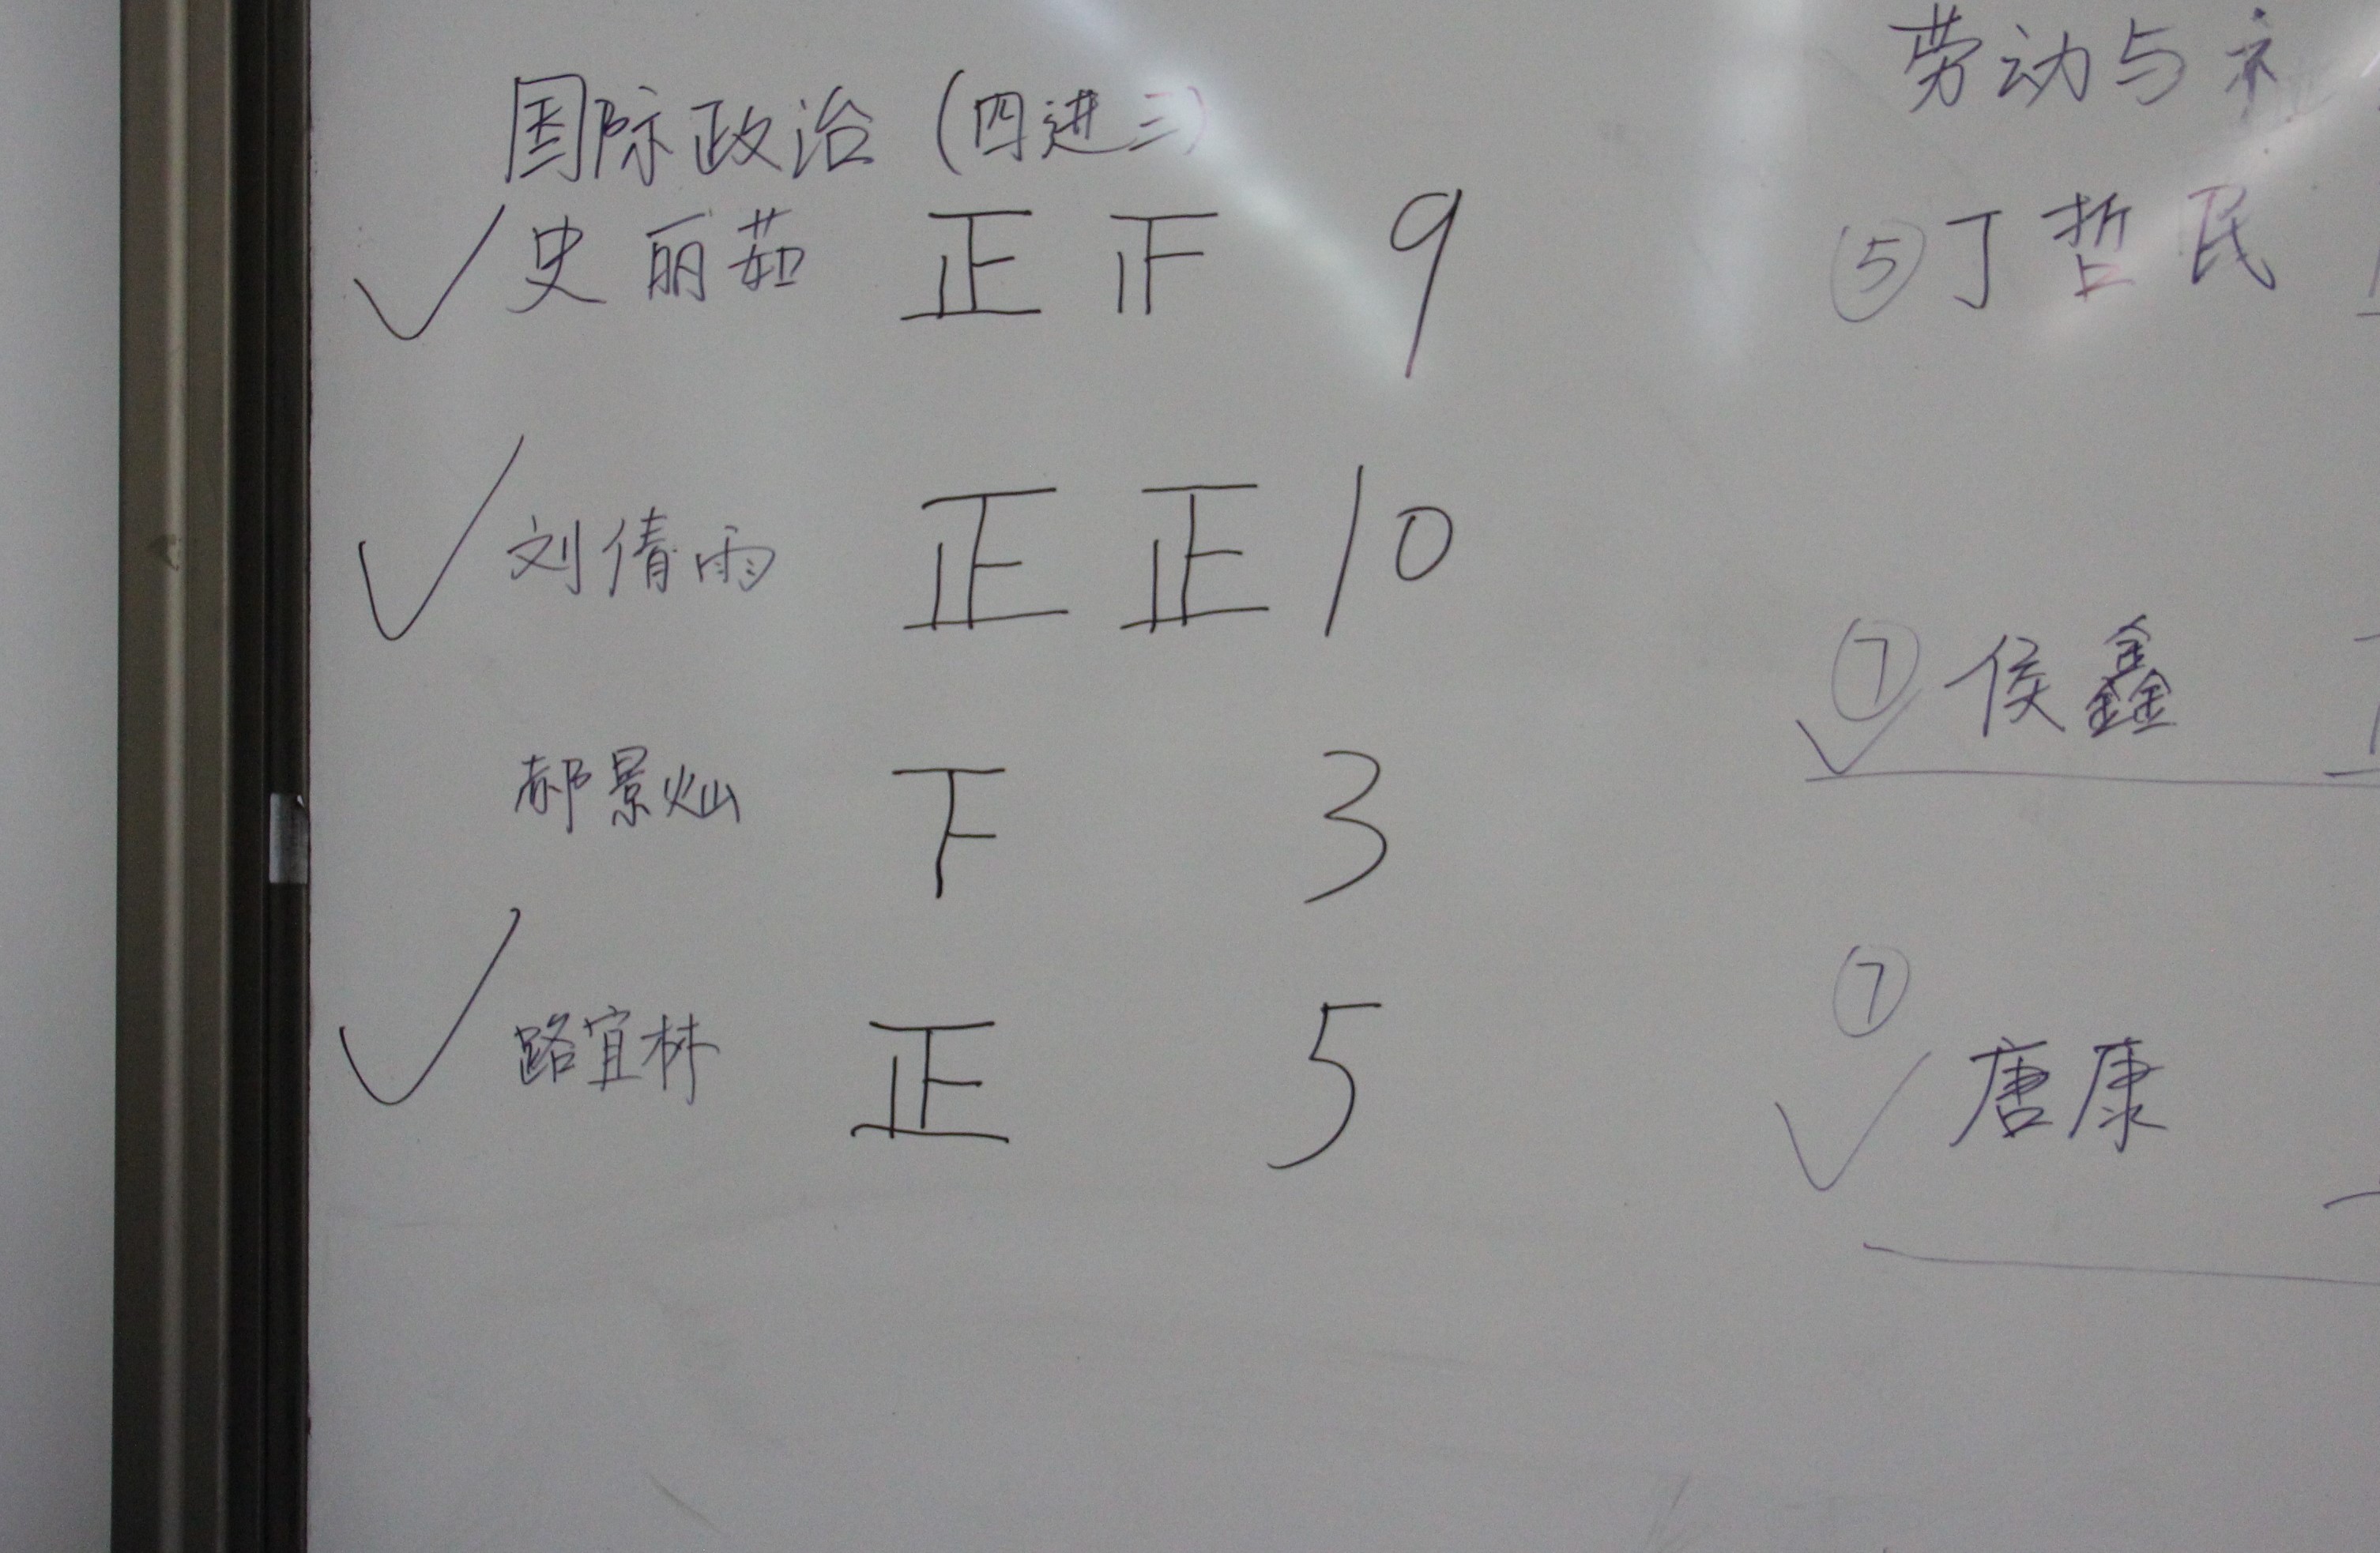 国际政治（四进三）
✓ 史丽茹 正 𤴓 9
✓ 刘倩雨 正 正 10
郝景灿 下 3
✓ 路宜林 正 5
劳动与社
⑤ 丁哲民
⑦ ✓ 侯鑫
⑦
✓ 唐康